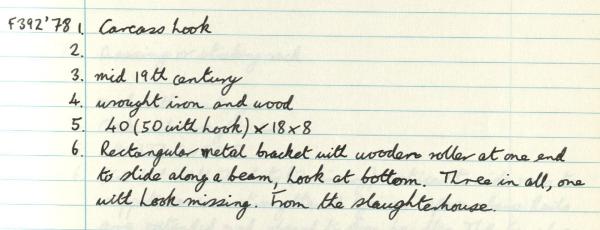 F392'78 1. Carcass hook
2.
3. mid 19th century
4. wrought iron and wood
5. 40 (50 with hook) × 18 × 8
6. Rectangular metal bracket with wooden roller at one end
to slide along a beam, hook at bottom. Three in all, one
with hook missing. From the slaughterhouse.